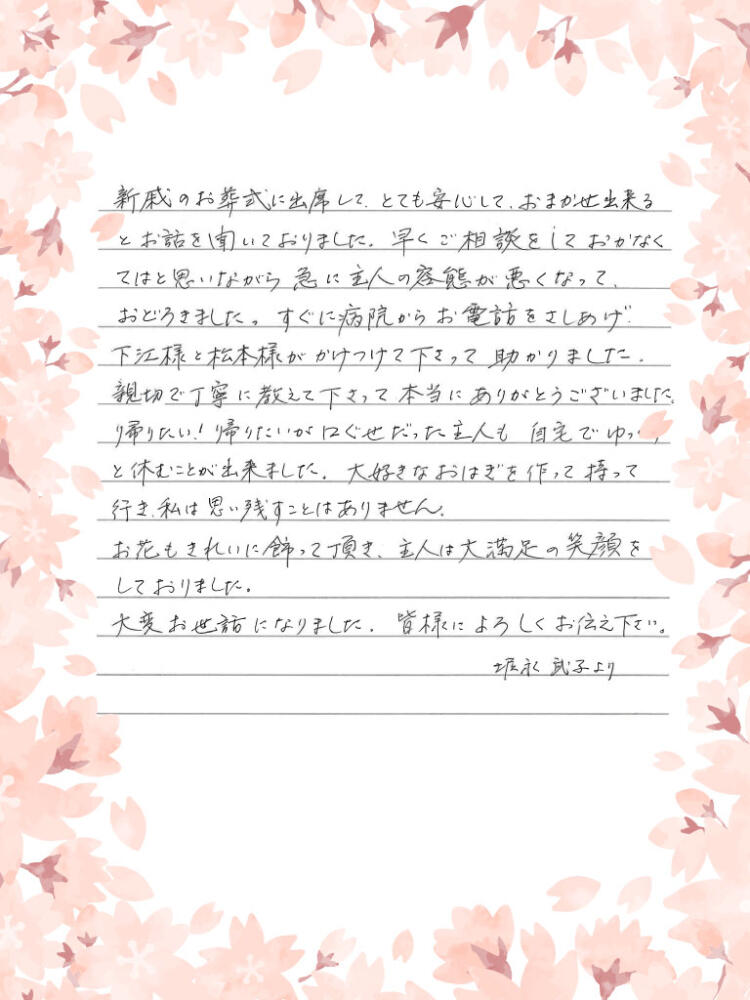 新戚のお葬式に出席して、とても安心して、おまかせ出来る
とお話を聞いておりました。早くご相談をしておかなく
てはと思いながら 急に主人の容態が悪くなって、
おどろきました。すぐに病院からお電話をさしあげ
下江様と松本様がかけつけて下さって 助かりました。
親切で丁寧に教えて下さって本当にありがとうございました
帰りたい!帰りたいが口ぐせだった主人も 自宅でゆっくり
と休むことが出来ました。大好きなおはぎを作って持って
行き、私は思い残すことはありません。
お花もきれいに飾って頂き、主人は大満足の笑顔を
しておりました。
大変お世話になりました。皆様によろしくお伝え下さい。
堀永 武子より